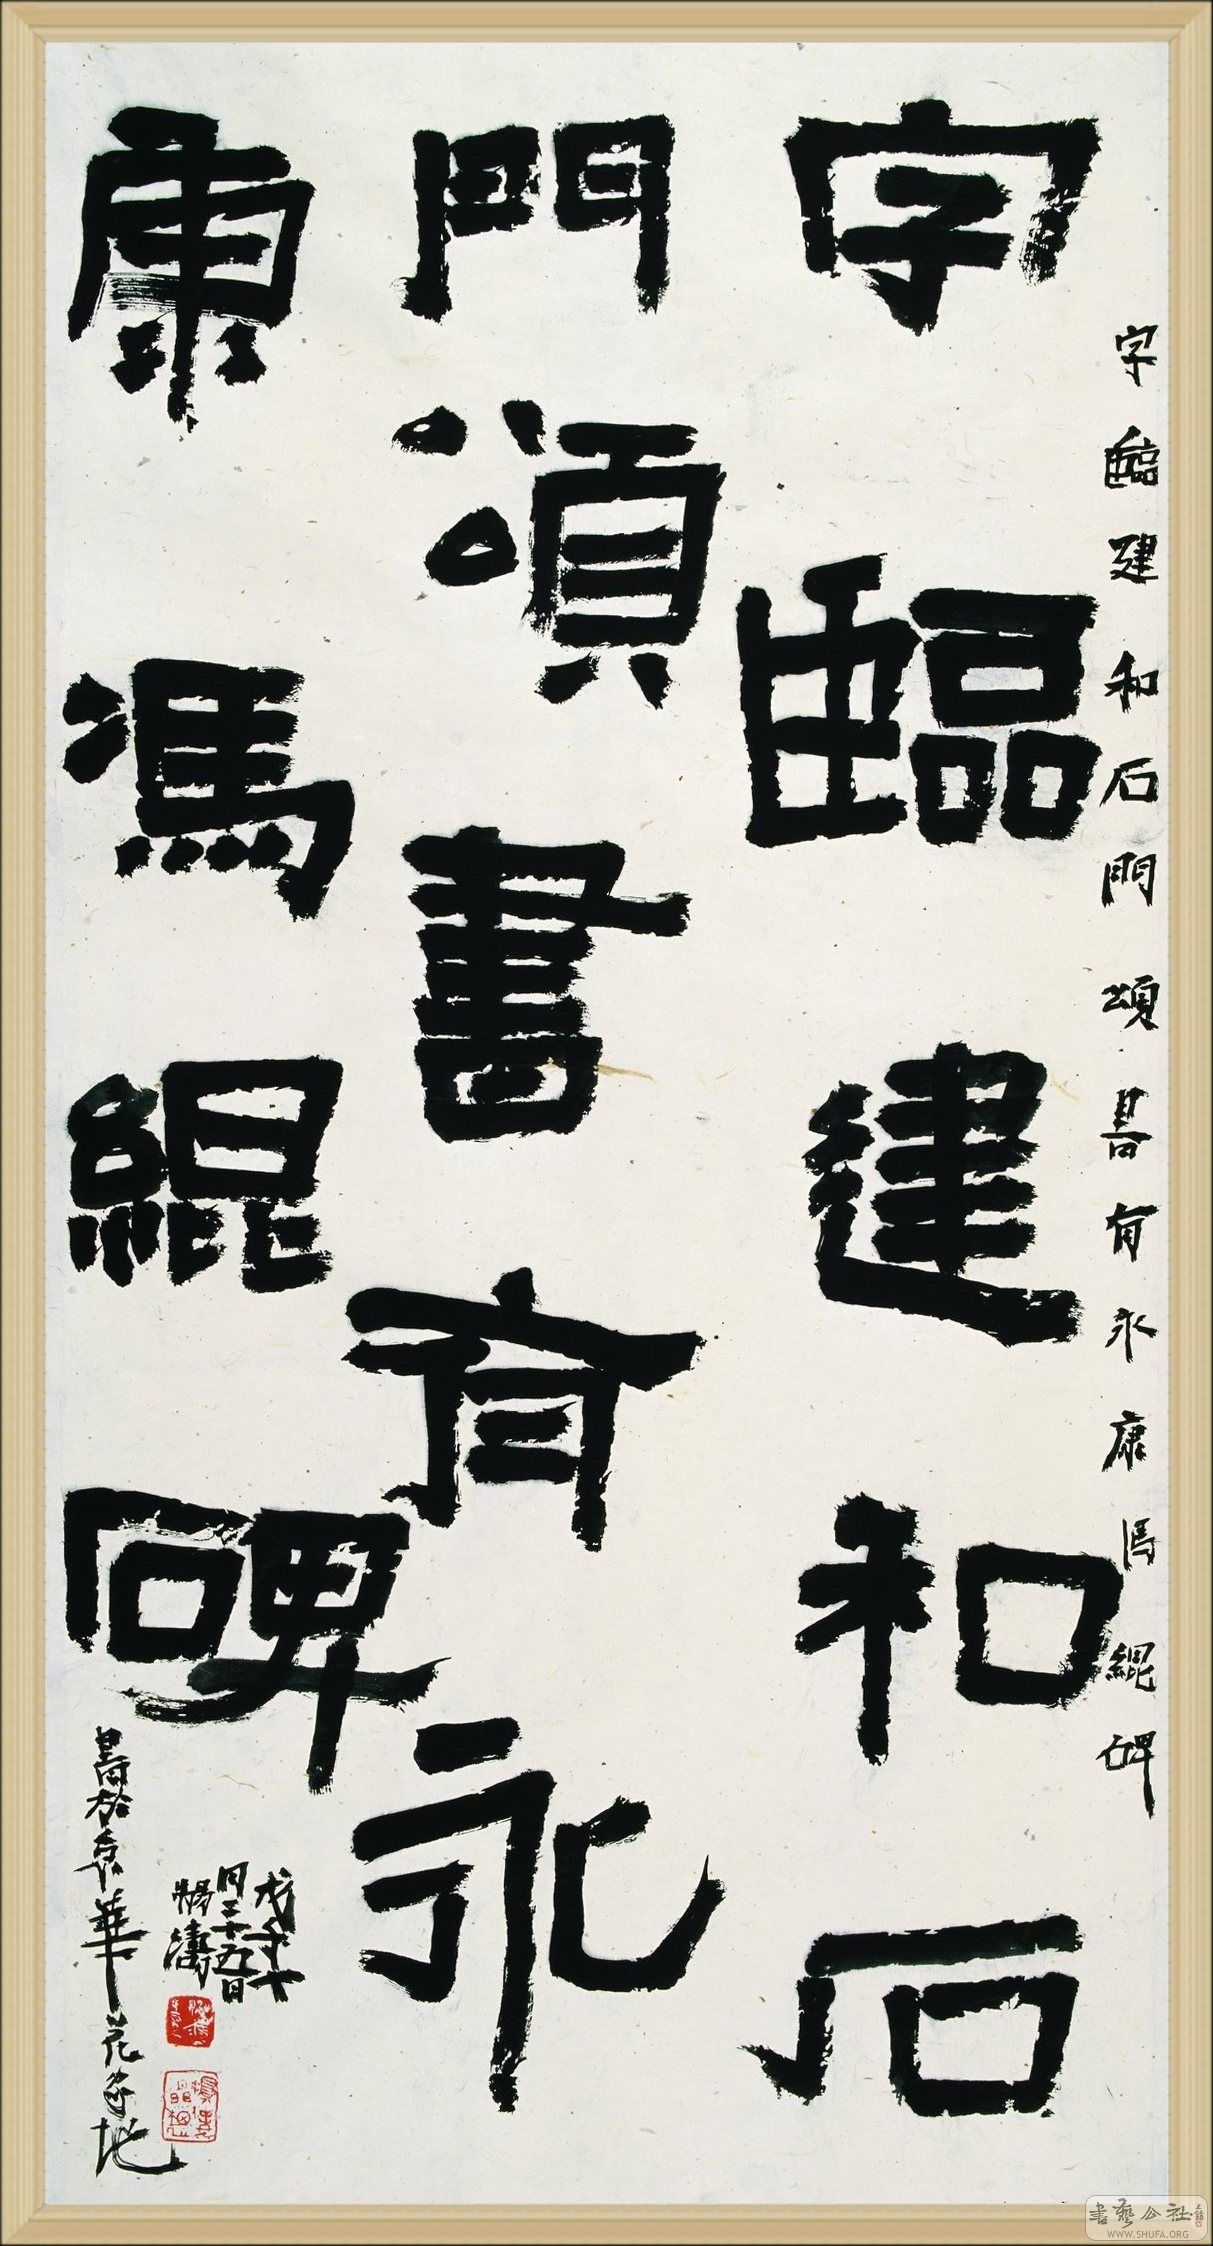 字臨建和石門頌書有永康馮緄碑
字臨建和石
門頌書有永
康馮緄碑
戊子十
月二十九日
楊濤
書於京華花家地
書藝公社
WWW.SHUFA.ORG